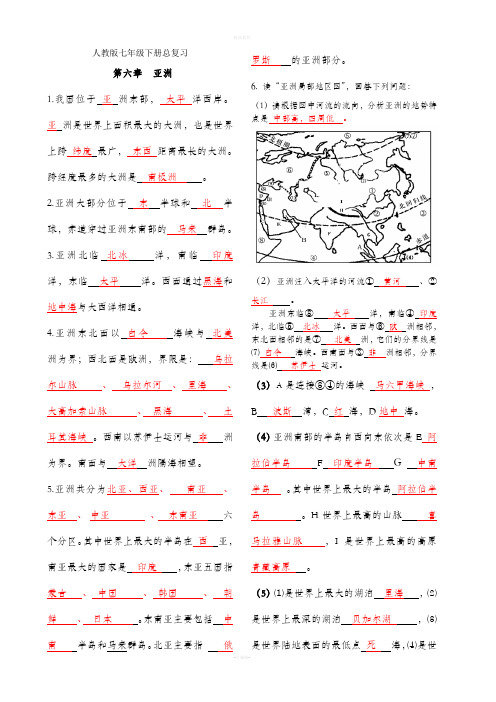 人教版七年级下册总复习
第六章 亚洲
1.我国位于 亚 洲东部， 太平 洋西岸。
亚 洲是世界上面积最大的大洲，也是世界
上跨 纬度 最广， 东西 距离最长的大洲。
跨经度最多的大洲是 南极洲 。
2.亚洲大部分位于 东 半球和 北 半
球，赤道穿过亚洲东南部的 马来 群岛。
3.亚洲北临 北冰 洋，南临 印度
洋，东临 太平 洋。西面通过黑海和
地中海与大西洋相通。
4.亚洲东北面以 白令 海峡与 北美
洲为界；西北面是欧洲，界限是： 乌拉
尔山脉 、 乌拉尔河 、 里海 、
大高加索山脉 、 黑海 、 土
耳其海峡 。西南以苏伊士运河与 非 洲
为界。南面与 大洋 洲隔海相望。
5.亚洲共分为北亚、西亚、 南亚 、
东亚 、 中亚 、 东南亚 六
个分区。其中世界上最大的半岛在 西 亚，
南亚最大的国家是 印度 ，东亚五国指
蒙古 、 中国 、 韩国 、 朝
鲜 、 日本 。东南亚主要包括 中
南 半岛和马来群岛。北亚主要指 俄
罗斯 的亚洲部分。
6. 读“亚洲局部地区图”，回答下列问题：
(1) 请根据图中河流的流向，分析亚洲的地势特
点是 中部高，四周低 。
北极圈
北回归线
赤道
(2) 亚洲注入太平洋的河流① 黄河 、②
长江 。
亚洲东临③ 太平 洋，南临④ 印度
洋，北临⑤ 北冰 洋。西面与⑥ 欧 洲相邻，
东北面相邻的是⑦ 北美 洲，它们的分界线是
⑺ 白令 海峡。西南面与⑧ 非 洲相邻，分界
线是⑹ 苏伊士 运河。
(3) A 是连接③④的海峡 马六甲海峡 ，
B 波斯 湾，C 红 海，D 地中 海。
(4) 亚洲南部的半岛自西向东依次是 E 阿
拉伯半岛 F 印度半岛 G 中南
半岛 。其中世界上最大的半岛 阿拉伯半
岛 。H 世界上最高的山脉 喜
马拉雅山脉 ，I 是世界上最高的高原
青藏高原 。
(5) ⑴是世界上最大的湖泊 里海 ，⑵
是世界上最深的湖泊 贝加尔湖 ，⑶
是世界陆地表面的最低点 死 海，⑷是世